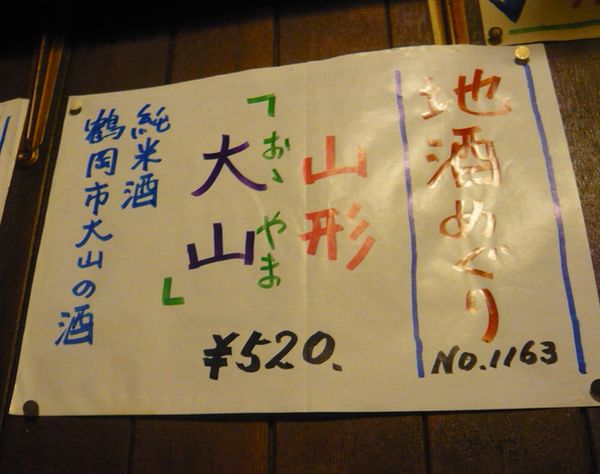 地酒めぐり
NO.1163
山形
「おゝやま
大山」
¥520.
純米酒
鶴岡市大山の酒